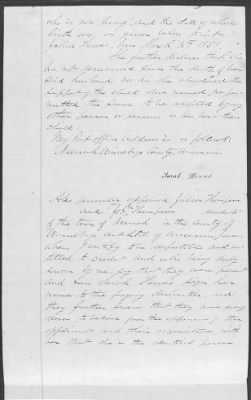 who is now living, and the date of whose
birth are as given below to wit:
James Hewes, born March 3rd 1851.
She further declares that she
has not remarried since the death of her
said husband nor has she abandoned the
support of the child above named, nor per-
mitted the same to be adopted by any
other person or persons as his her or their
child
My Post Office address is as follows:
Neenah Winnebago County, Wisconsin
Sarah Hewes
Also personally appeared
and Thompson residents
of the town of Neenah in the county of
Winnebago and State of Wisconsin, persons
whom I certify to be respectable and en-
titled to credit and who being duly
sworn by me say that they were present
and saw Sarah Hewes sign her
name to the foregoing declaration, and
they further swear that they have every
reason to believe from the appearance of the
applicant and their acquaintance with
her that she is the identical person